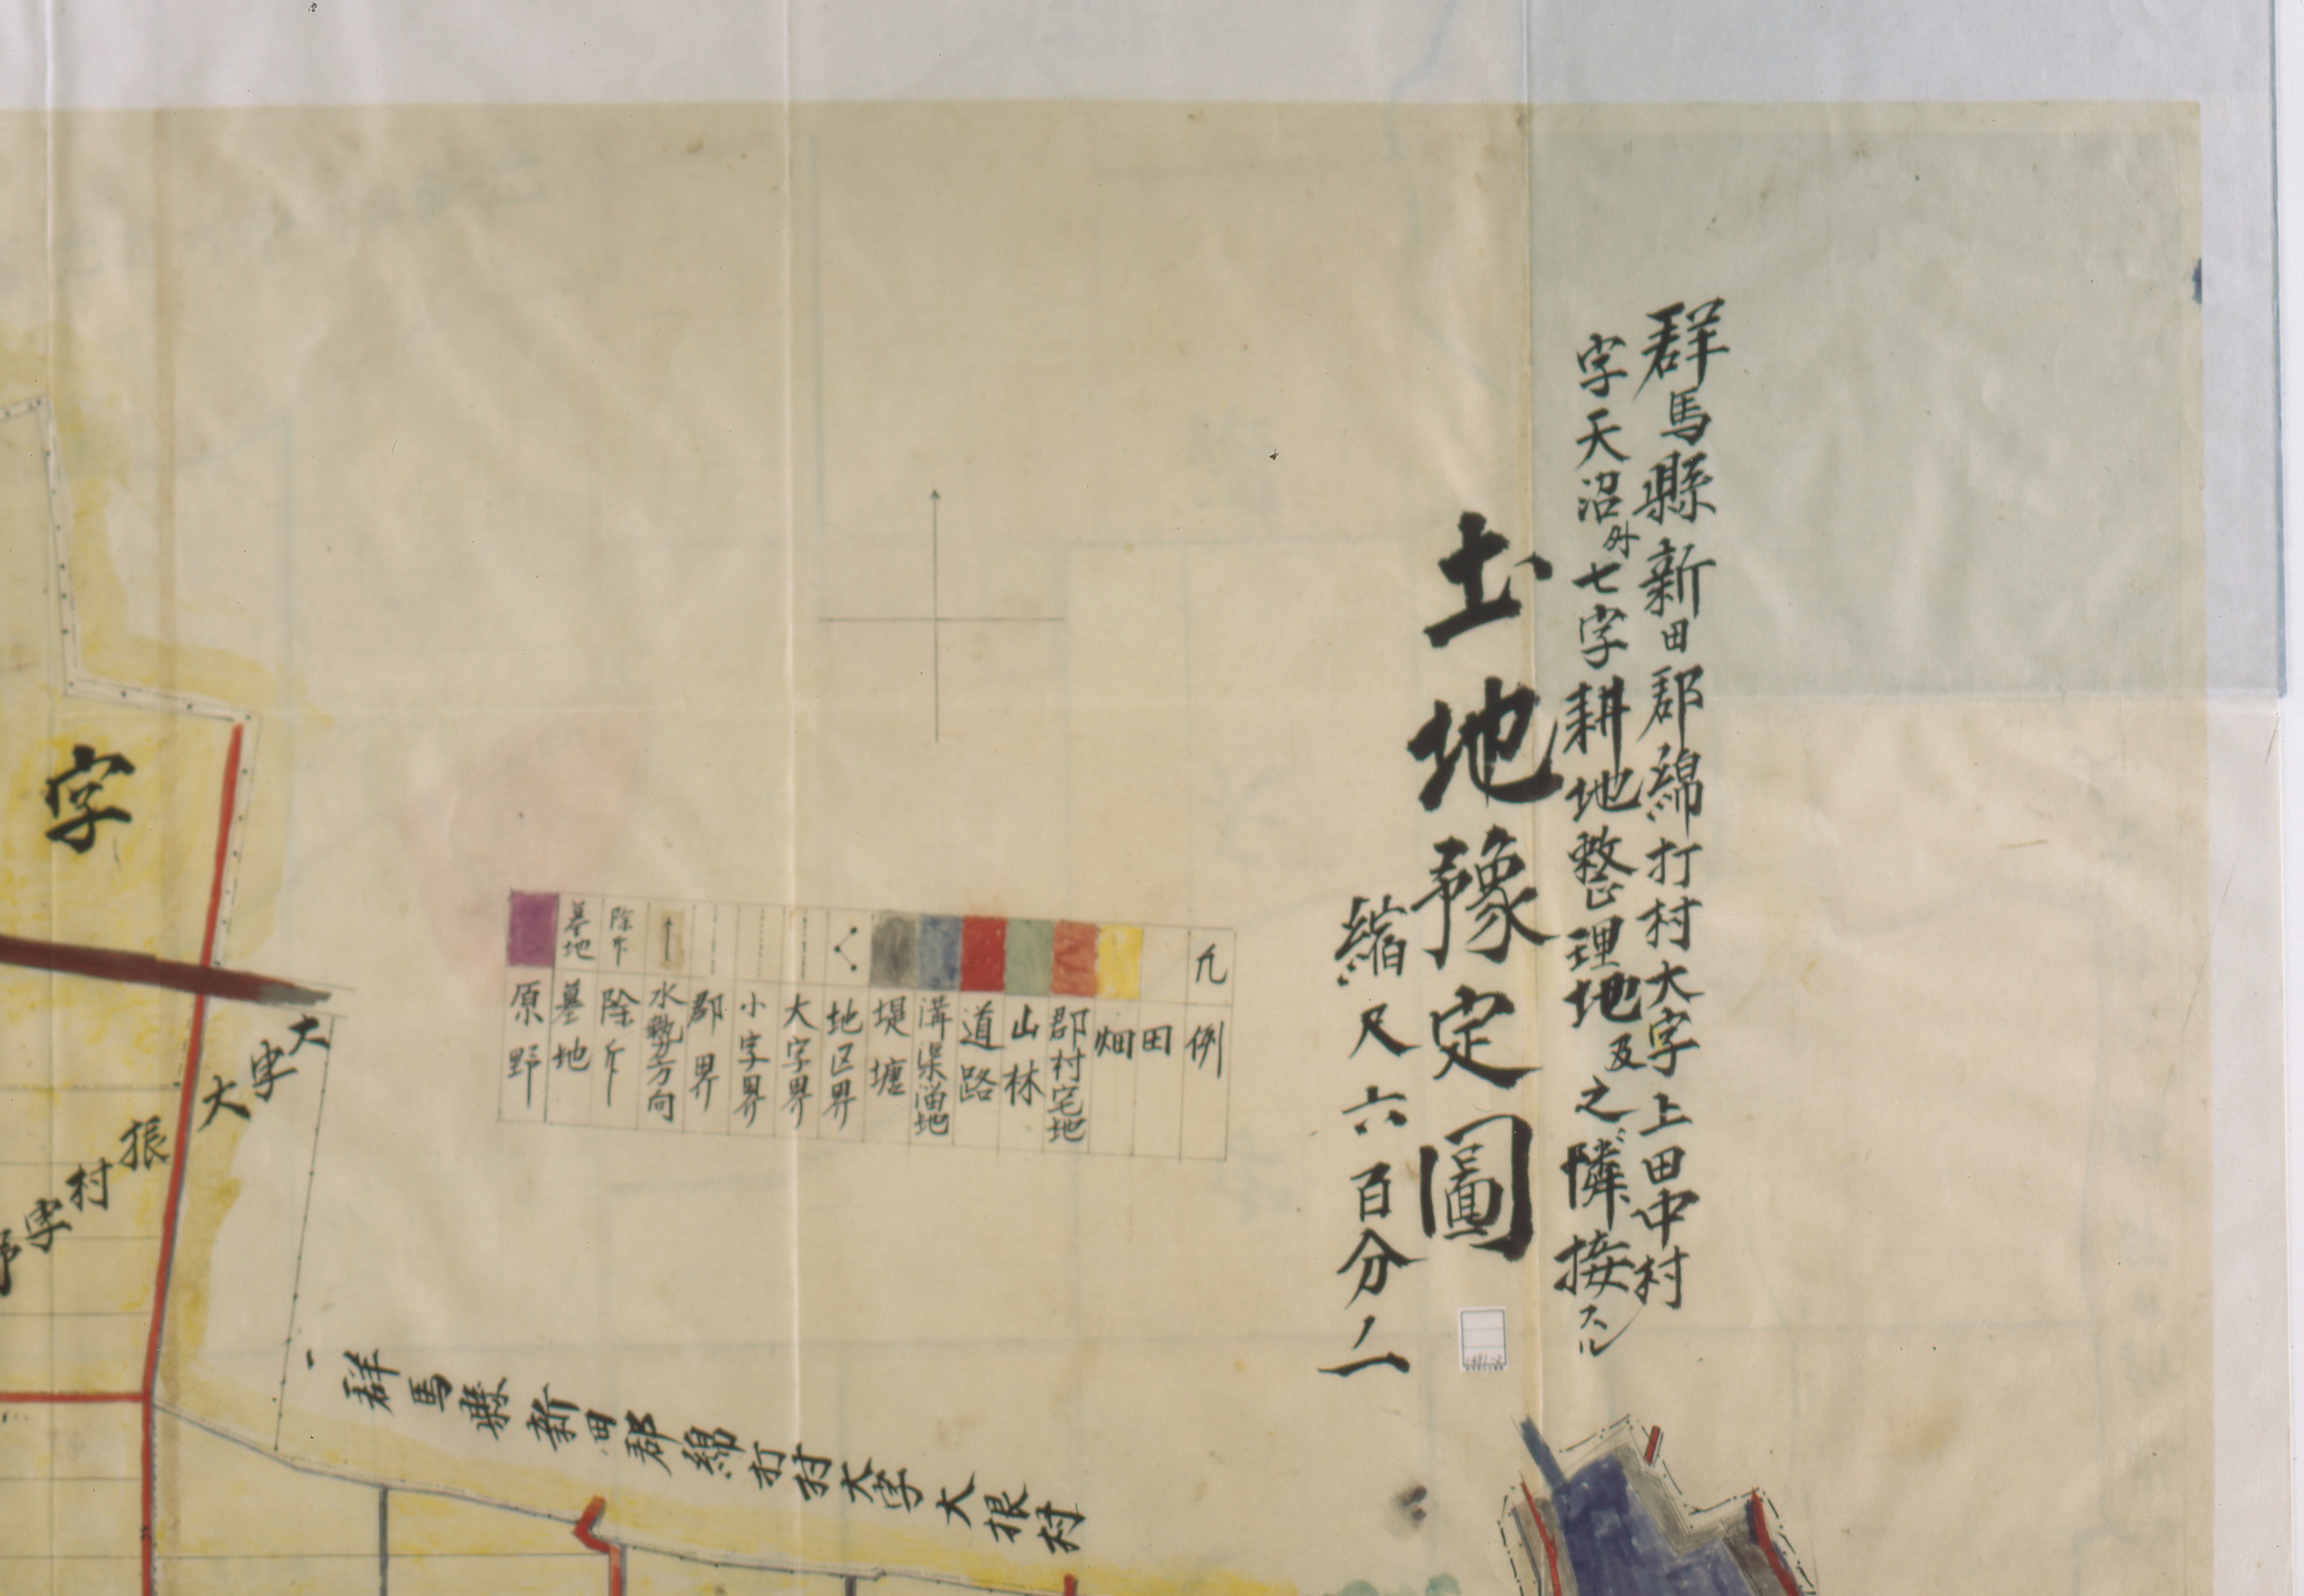 群馬縣新田郡綿打村大字上田中村
字天沼外七字耕地整理地及之ニ隣接スル
土地豫定圖
縮尺六百分ノ一
凡例
田
畑
郡村宅地
山林
道路
溝渠溜地
堤塘
地区界
大字界
小字界
郡界
水勢方向
除斥 除斥
墓地 墓地
原野
字
大字大
根村
字
群馬縣新田郡綿打村大字大根村